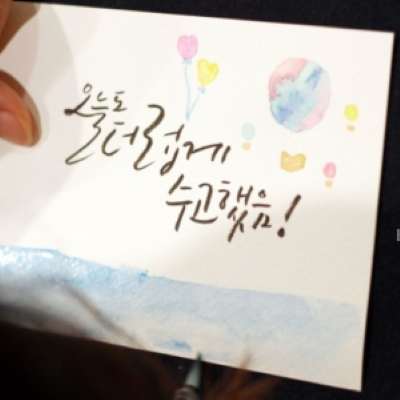 오늘도
더럽게
수고했음!